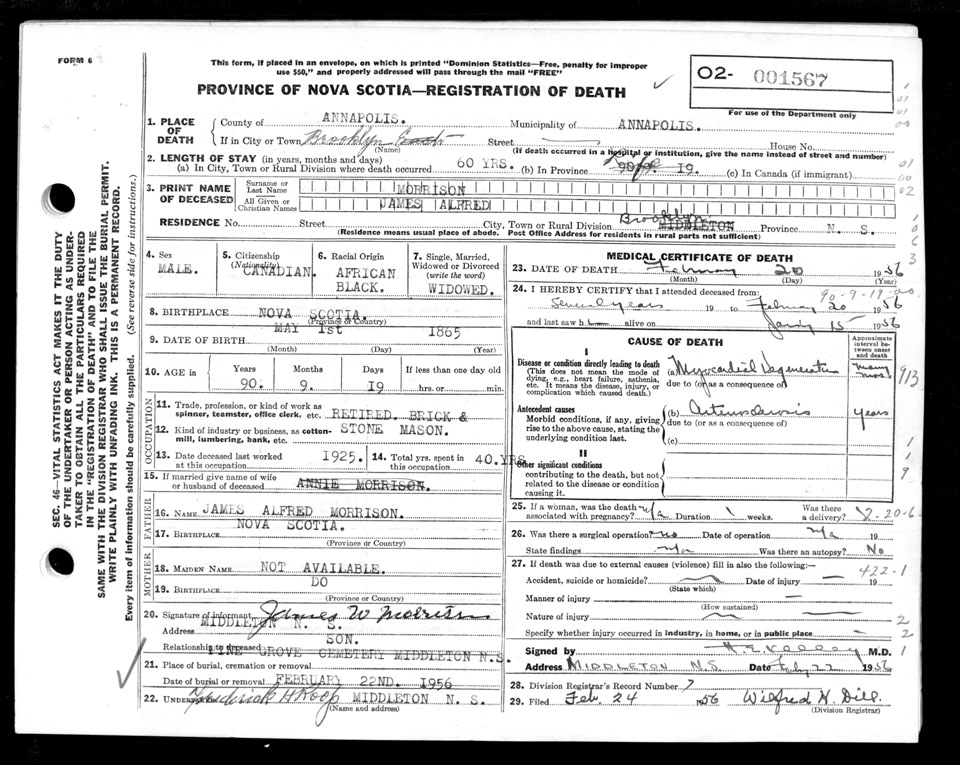 FORM 6
This form, if placed in an envelope, on which is printed "Dominion Statistics—Free, penalty for improper
use $50," and properly addressed will pass through the mail "FREE"
PROVINCE OF NOVA SCOTIA—REGISTRATION OF DEATH
02- 001567
For use of the Department only
1. PLACE OF DEATH
County of ANNAPOLIS. Municipality of ANNAPOLIS.
If in City or Town Brooklyn East Street House No.
(Name) (If death occurred in a hospital or institution, give the name instead of street and number)
2. LENGTH OF STAY (in years, months and days)
(a) In City, Town or Rural Division where death occurred 60 YRS. (b) In Province 90/9. 19. (c) In Canada (if immigrant)
3. PRINT NAME OF DECEASED
Surname or Last Name MORRISON
All Given or Christian Names JAMES ALFRED
RESIDENCE No. Street City, Town or Rural Division Brooklyn MIDDLETON Province N. S.
(Residence means usual place of abode. Post Office Address for residents in rural parts not sufficient)
4. Sex
MALE.
5. Citizenship
(Nationality)
CANADIAN.
6. Racial Origin
AFRICAN
BLACK.
7. Single, Married,
Widowed or Divorced
(write the word)
WIDOWED.
8. BIRTHPLACE NOVA SCOTIA.
(Province or Country)
9. DATE OF BIRTH MAY 1st 1865
(Month) (Day) (Year)
10. AGE in
Years Months Days If less than one day old
90. 9. 19 hrs. or min.
OCCUPATION
11. Trade, profession, or kind of work as
spinner, teamster, office clerk, etc. RETIRED. BRICK &
12. Kind of industry or business, as cotton-
mill, lumbering, bank, etc. STONE MASON.
13. Date deceased last worked
at this occupation 1925.
14. Total yrs. spent in
this occupation 40.YRS
15. If married give name of wife
or husband of deceased ANNIE MORRISON.
FATHER
16. NAME JAMES ALFRED MORRISON.
17. BIRTHPLACE NOVA SCOTIA.
(Province or Country)
MOTHER
18. MAIDEN NAME NOT AVAILABLE.
19. BIRTHPLACE DO
(Province or Country)
20. Signature of informant James W Morrison
Address MIDDLETON N. S.
Relationship to deceased SON.
21. Place of burial, cremation or removal PINE GROVE CEMETERY MIDDLETON N.S.
Date of burial or removal FEBRUARY 22ND. 1956
22. Undertaker Frederick A Roop MIDDLETON N. S.
(Name and address)
MEDICAL CERTIFICATE OF DEATH
23. DATE OF DEATH February 20 1956
(Month) (Day) (Year)
90-9-19-00
24. I HEREBY CERTIFY that I attended deceased from:
Several years 19 to February 20 1956
and last saw h alive on 15 1956
CAUSE OF DEATH
Approximate interval between onset and death
I
Disease or condition directly leading to death
(This does not mean the mode of dying, e.g., heart failure, asthenia, etc. It means the disease, injury, or complication which caused death.)
(a) Myocardial Degeneration many mos
due to (or as a consequence of)
913
Antecedent causes
Morbid conditions, if any, giving rise to the above cause, stating the underlying condition last.
(b) Arteriosclerosis years
due to (or as a consequence of)
(c)
II
Other significant conditions
contributing to the death, but not related to the disease or condition causing it.
25. If a woman, was the death associated with pregnancy? n/a Duration weeks. Was there a delivery?
2-20-6
26. Was there a surgical operation? no Date of operation n/a 19
State findings n/a Was there an autopsy? No
27. If death was due to external causes (violence) fill in also the following:—
422-1
Accident, suicide or homicide? Date of injury — 19
(State which)
Manner of injury —
(How sustained)
Nature of injury
Specify whether injury occurred in industry, in home, or in public place —
Signed by H. E. Kelley M.D.
Address MIDDLETON N.S. Date Feby 22 1956
28. Division Registrar's Record Number 7
29. Filed Feb. 24 1956 Wilfred H. Dill.
(Division Registrar)
SEC. 46—VITAL STATISTICS ACT MAKES IT THE DUTY
OF THE UNDERTAKER OR PERSON ACTING AS UNDER-
TAKER TO OBTAIN ALL THE PARTICULARS REQUIRED
IN THE "REGISTRATION OF DEATH" AND TO FILE THE
SAME WITH THE DIVISION REGISTRAR WHO SHALL ISSUE THE BURIAL PERMIT.
WRITE PLAINLY WITH UNFADING INK. THIS IS A PERMANENT RECORD.
Every item of information should be carefully supplied. (See reverse side for instructions.)